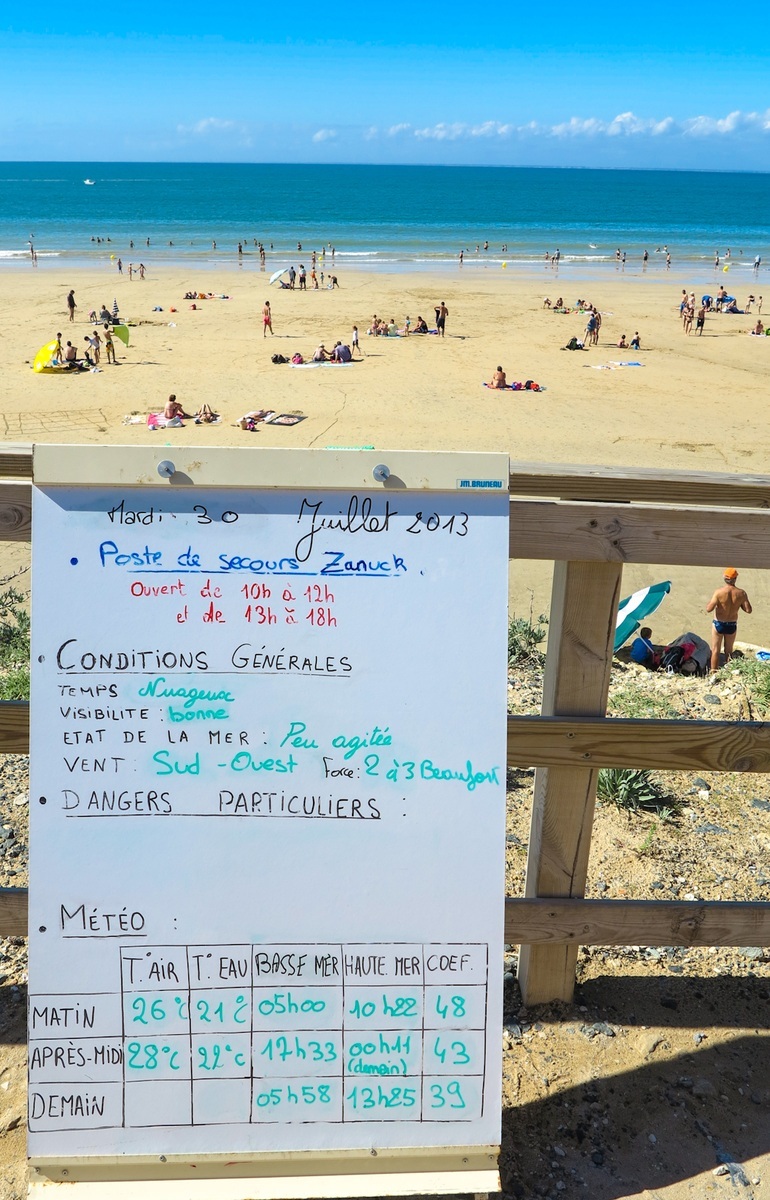 JM.BRUNEAU
Mardi 30 Juillet 2013
• Poste de secours Zanuck.
Ouvert de 10h à 12h
et de 13h à 18h
• CONDITIONS GÉNÉRALES
TEMPS Nuageux
VISIBILITE : bonne
ETAT DE LA MER : Peu agitée
VENT : Sud - Ouest Force : 2 à 3 Beaufort
• DANGERS PARTICULIERS :
• MÉTÉO :
T°AIR T°EAU BASSE MER HAUTE MER COEF.
MATIN 26°c 21°c 05h00 10h22 48
APRÈS-MIDI 28°c 22°c 17h33 00h11 (demain) 43
DEMAIN 05h58 13h25 39